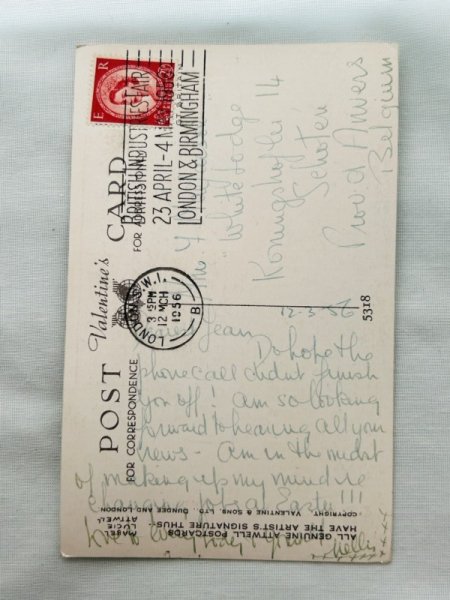 POST CARD
Valentine's
FOR CORRESPONDENCE
FOR
E R
BRITISH INDUSTRIES FAIR
23 APRIL-4 MAY
LONDON & BIRMINGHAM
LONDON. S.W.1.
3 15 PM
12 MCH
1956
B
White Lodge
Koningshoflei 14
Schoten
Prov. d'Anvers
Belgium
5318
12-3-56
Jean,
Do hope the
phone call didn't finish
you off! Am so looking
forward to hearing all your
news - Am in the midst
of making up my mind re
changing jobs at Easter!!!
Love to
Nellie
xxxxxxx
MABEL
LUCIE
ATTWELL
ALL GENUINE ATTWELL POSTCARDS
HAVE THE ARTIST'S SIGNATURE THUS-
COPYRIGHT, VALENTINE & SONS, LTD. DUNDEE AND LONDON